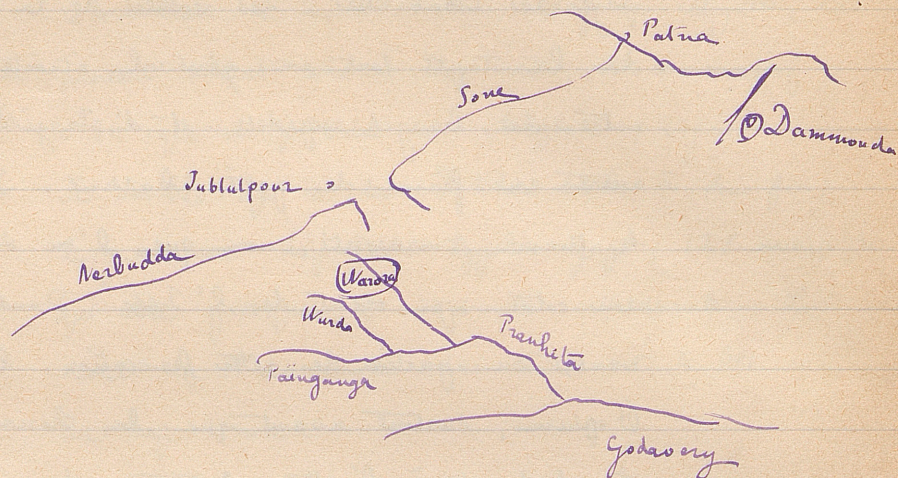 Patna
Sone
Dammouda
Jubbulpour
Nerbudda
Warora
Wurda
Pranhita
Païnganga
Godavery